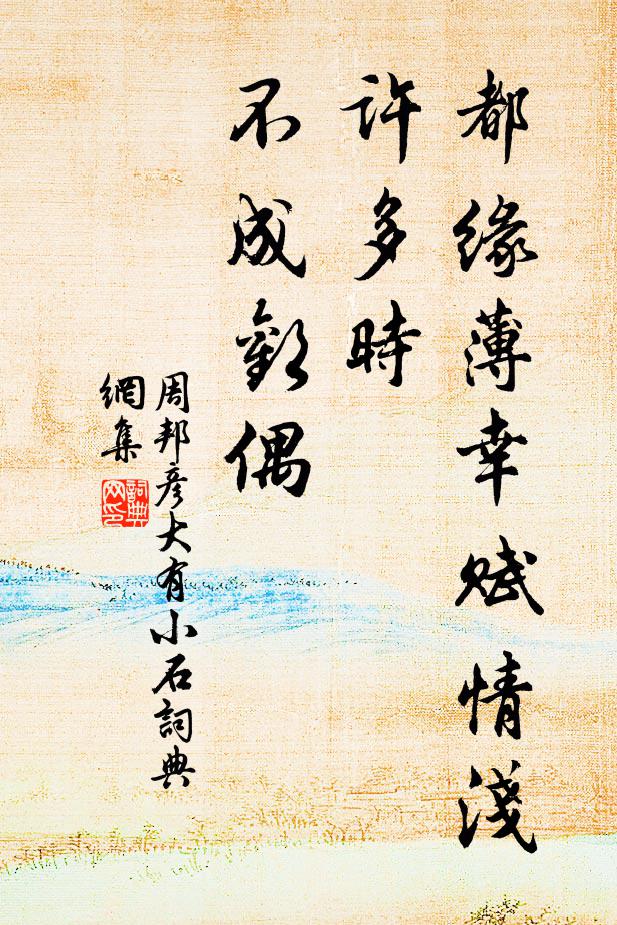 都緣薄幸賦情淺
許多時
不成歡偶
周邦彥大有小石詞典
網集
詞典
网印